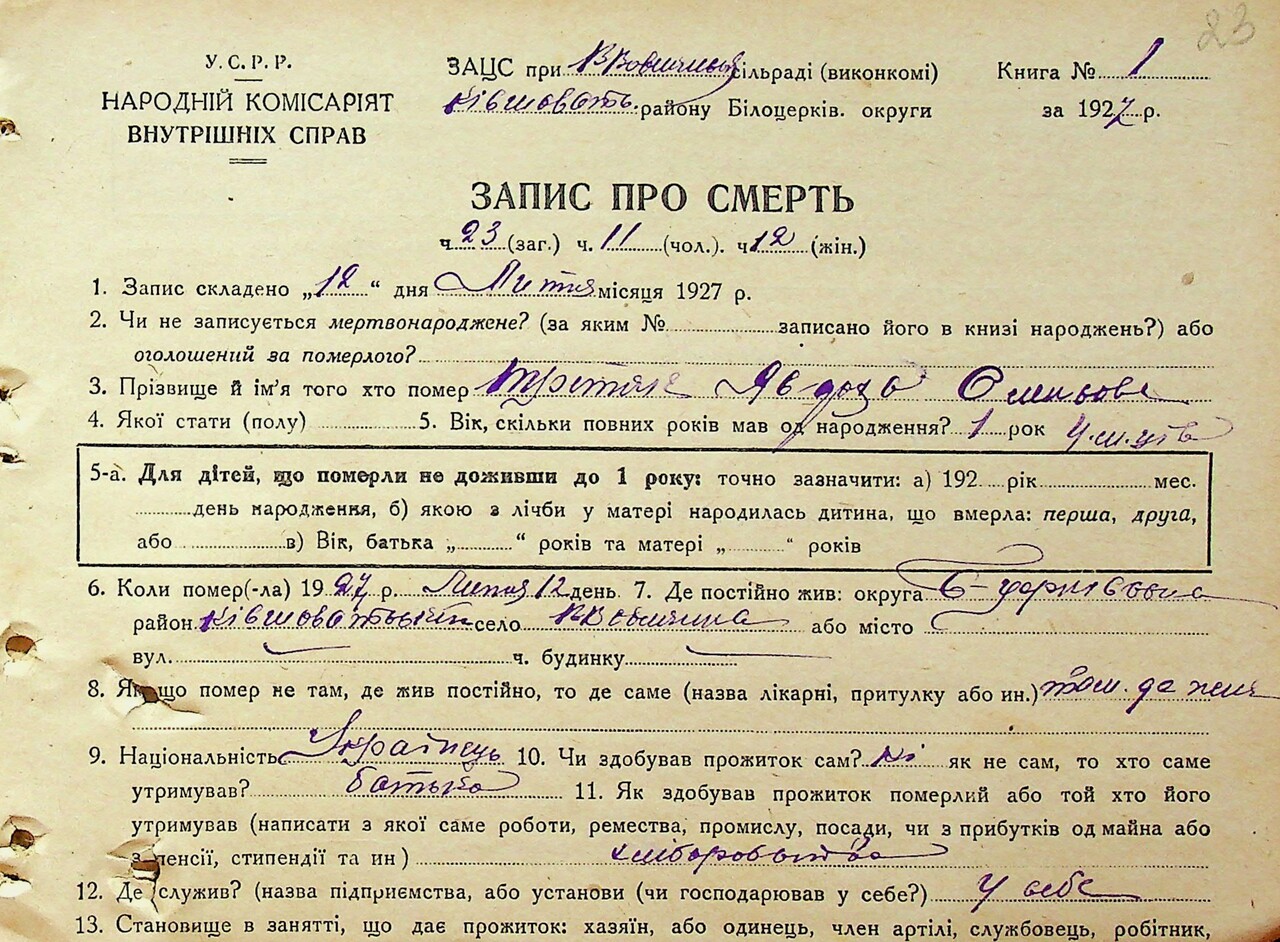 23
У.С.Р.Р.
НАРОДНІЙ КОМІСАРІЯТ
ВНУТРІШНІХ СПРАВ
ЗАЦС при В Вовнянській сільраді (виконкомі)
Ківшоватськ. району Білоцерків. округи
Книга № 1
за 1927 р.
ЗАПИС ПРО СМЕРТЬ
ч. 23 (заг.) ч. 11 (чол.). ч 12 (жін.)
1. Запис складено „12“ дня Липня місяця 1927 р.
2. Чи не записується мертвонароджене? (за яким № записано його в книзі народжень?) або
оголошений за померлого?
3. Прізвище й ім'я того хто помер Третяк Явдоха
4. Якої стати (полу) 5. Вік, скільки повних років мав од народження? 1 рок
5-а. Для дітей, що померли не доживши до 1 року: точно зазначити: а) 192 рік мес.
день народження, б) якою з лічби у матері народилась дитина, що вмерла: перша, друга,
або в) Вік, батька „ “ років та матері „ “ років
6. Коли помер(-ла) 1927 р. Липня 12 день 7. Де постійно жив: округа
район Ківшоватський село або місто
вул. ч. будинку
8. Якщо помер не там, де жив постійно, то де саме (назва лікарні, притулку або ин.) там. де жив
9. Національність Українець 10. Чи здобував прожиток сам? ні як не сам, то хто саме
утримував? батько 11. Як здобував прожиток померлий або той хто його
утримував (написати з якої саме роботи, ремества, промислу, посади, чи з прибутків од майна або
з пенсії, стипендії та ин) хліборобьства
12. Де служив? (назва підприємства, або установи (чи господарював у себе?) у себе
13. Становище в занятті, що дає прожиток: хазяїн, або одинець, член артілі, службовець, робітник,